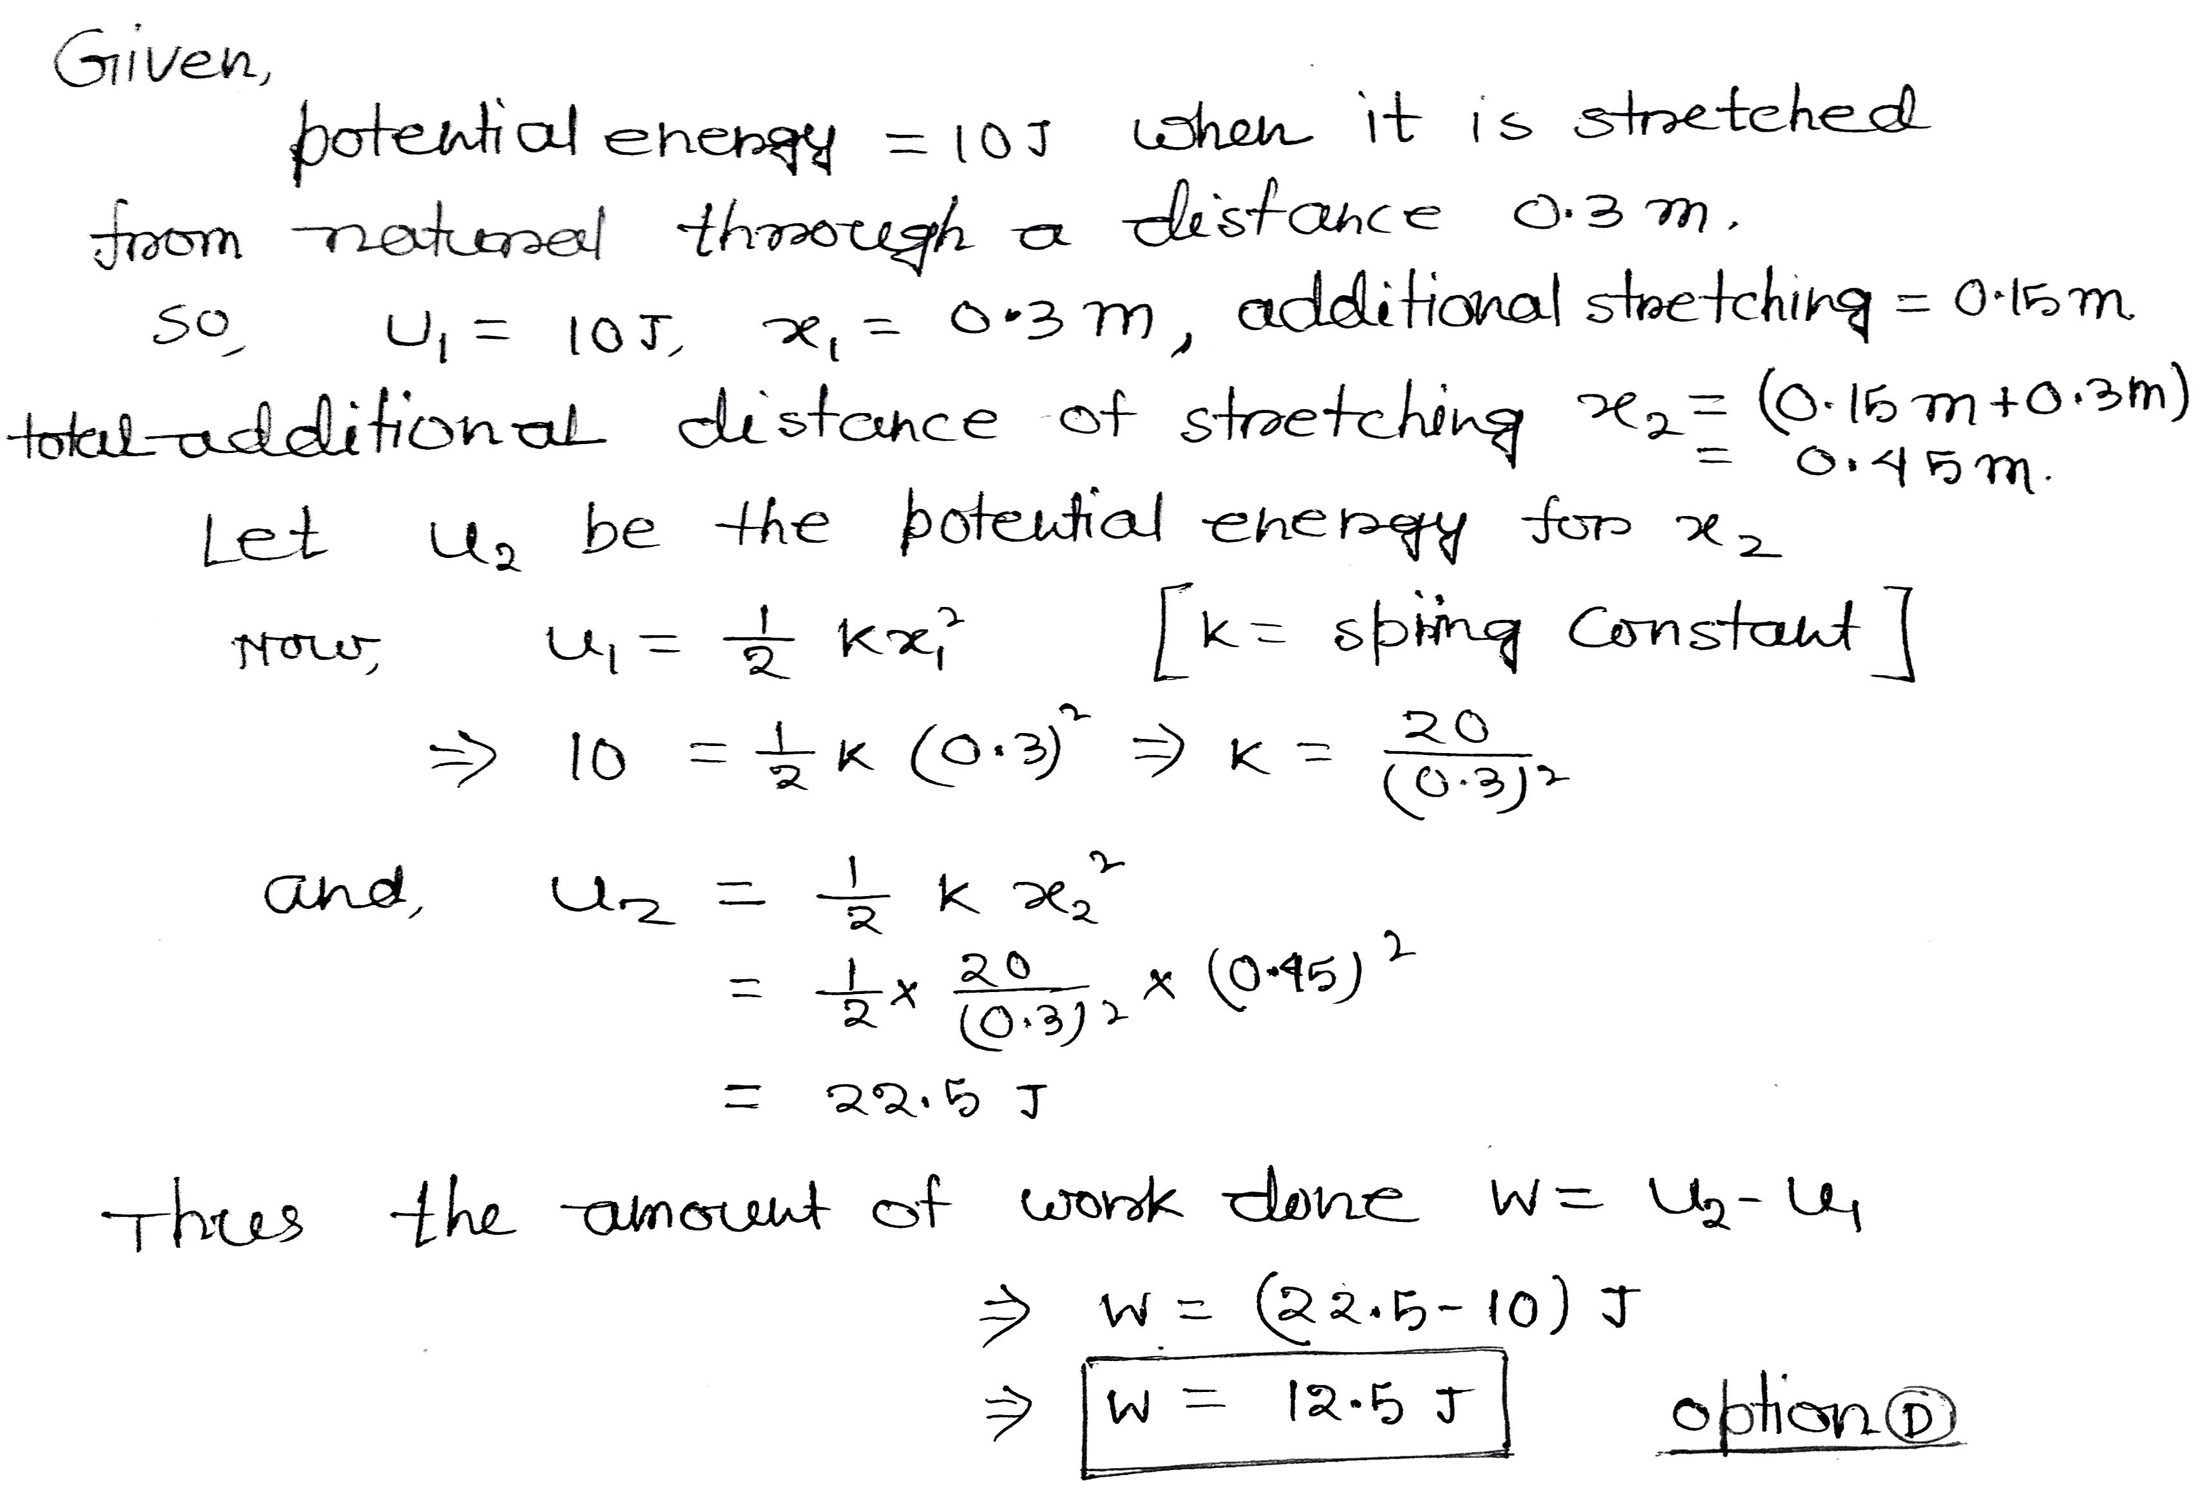 Given,
potential energy = 10J when it is stretched
from natural through a distance 0.3 m.
so, U₁ = 10J, x₁ = 0.3 m, additional stretching = 0.15m
total additional distance of stretching x₂ = (0.15 m + 0.3m)
= 0.45m.
Let u₂ be the potential energy for x₂
Now, u₁ = 1/2 kx₁² [k = spring constant]
⇒ 10 = 1/2 k (0.3)² ⇒ k = 20/(0.3)²
and, u₂ = 1/2 k x₂²
= 1/2 × 20/(0.3)² × (0.45)²
= 22.5 J
Thus the amount of work done W = u₂ - u₁
⇒ W = (22.5 - 10) J
⇒ W = 12.5 J option Ⓓ